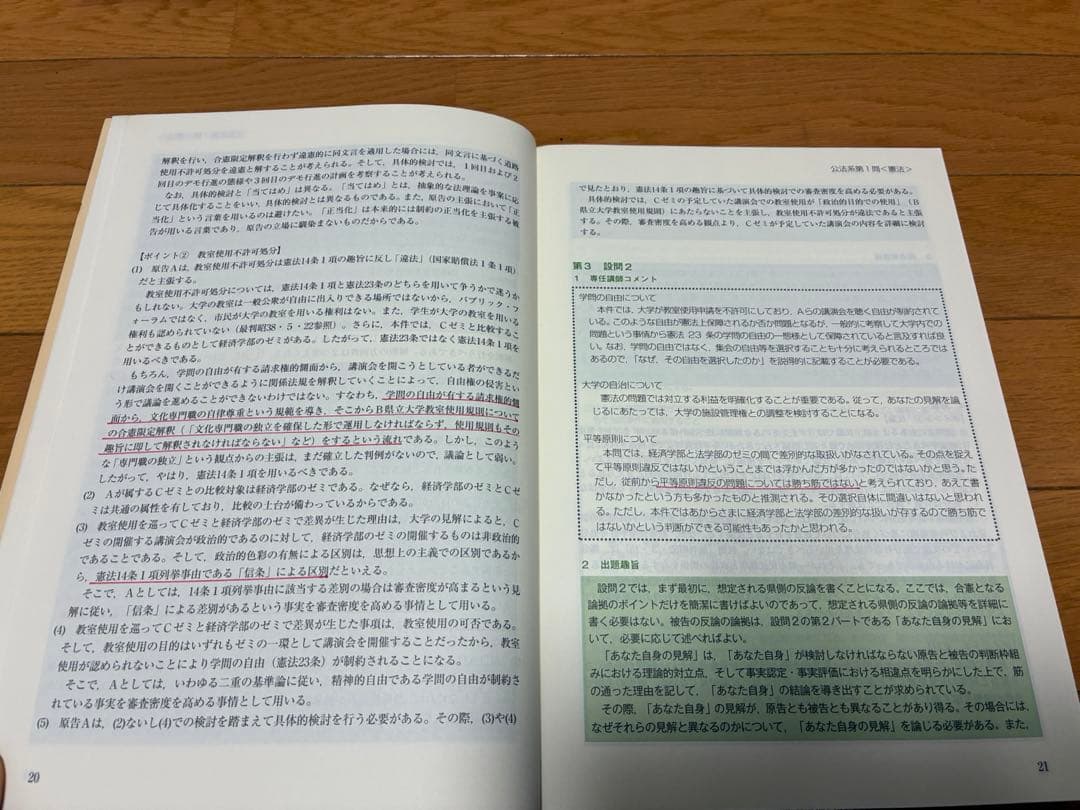 解釈を行い，合憲限定解釈を行わず違憲的に同文言を適用した場合には，同文言に基づく道路
使用不許可処分を違憲と解することが考えられる。そして，具体的検討では，1回目および2
回目のデモ行進の態様や3回目のデモ行進の計画を考察することが考えられる。
なお，具体的検討と「当てはめ」は異なる。「当てはめ」とは，抽象的な法理論を事案に応
じて具体化することをいい，具体的検討とは異なるものである。また，原告の主張において「正
当化」という言葉を用いるのは避けたい。「正当化」は本来的には制約の正当化を主張する被
告が用いる言葉であり，原告の立場に馴染まないものだからである。
【ポイント② 教室使用不許可処分】
(1) 原告Aは，教室使用不許可処分は憲法14条1項の趣旨に反し「違法」（国家賠償法1条1項）
だと主張する。
教室使用不許可処分については，憲法14条1項と憲法23条のどちらを用いて争うかで迷うか
もしれない。大学の教室は一般公衆が自由に出入りできる場所ではないから，パブリック・フ
ォーラムではなく，市民が大学の教室を用いる権利はない。また，学生が大学の教室を用いる
権利も認められていない（最判昭38・5・22参照）。さらに，本件では，Cゼミと比較するこ
とができるものとして経済学部のゼミがある。したがって，憲法23条ではなく憲法14条1項を
用いるべきである。
もちろん，学問の自由が有する請求権的側面から，講演会を開こうとしている者ができるだ
け講演会を開くことができるように関係法規を解釈していくことによって，自由権の侵害とい
う形で議論を進めることができないわけではない。すなわち，学問の自由が有する請求権的側
面から，文化専門職の自律尊重という規範を導き，そこからB県立大学教室使用規則について
の合憲限定解釈（「文化専門職の独立を確保した形で運用しなければならず，使用規則もその
趣旨に即して解釈されなければならない」など）をするという流れである。しかし，このよう
な「専門職の独立」という観点からの主張は，まだ確立した判例がないので，議論として弱い。
したがって，やはり，憲法14条1項を用いるべきである。
(2) Aが属するCゼミとの比較対象は経済学部のゼミである。なぜなら，経済学部のゼミとCゼ
ミは共通の属性を有しており，比較の土台が備わっているからである。
(3) 教室使用を巡ってCゼミと経済学部のゼミで差異が生じた理由は，大学の見解によると，C
ゼミの開催する講演会が政治的であるのに対して，経済学部のゼミの開催するものは非政治的
であることである。そして，政治的色彩の有無による区別は，思想上の主義での区別であるか
ら，憲法14条1項列挙事由である「信条」による区別だといえる。
そこで，Aとしては，14条1項列挙事由に該当する差別の場合は審査密度が高まるという見
解に従い，「信条」による差別があるという事実を審査密度を高める事情として用いる。
(4) 教室使用を巡ってCゼミと経済学部のゼミで差異が生じた事項は，教室使用の可否である。
そして，教室使用の目的はいずれもゼミの一環として講演会を開催することだったから，教室
使用が認められないことにより学問の自由（憲法23条）が制約されることになる。
そこで，Aとしては，いわゆる二重の基準論に従い，精神的自由である学問の自由が制約さ
れている事実を審査密度を高める事情として用いる。
(5) 原告Aは，(2)ないし(4)での検討を踏まえて具体的検討を行う必要がある。その際，(3)や(4)
20
公法系第1問＜憲法＞
で見たとおり，憲法14条1項の趣旨に基づいて具体的検討での審査密度を高める必要がある。
具体的検討では，Cゼミの予定していた講演会での教室使用が「政治的目的での使用」（B
県立大学教室使用規則）にあたらないことを主張し，教室使用不許可処分が違法であると主張す
る。その際，審査密度を高める観点より，Cゼミが予定していた講演会の内容を詳細に検討
する。
第3 設問2
1 専任講師コメント
学問の自由について
本件では，大学が教室使用申請を不許可にしており，Aらの講演会を聴く自由が制約されて
いる。このような自由が憲法上保障されるか否か問題となるが，一般的に考察して大学内での
問題という事情から憲法23条の学問の自由の一態様として保障されていると言及すれば良
い。なお，学問の自由ではなく，集会の自由等を選択することも十分に考えられるところでは
あるので，「なぜ，その自由を選択したのか」を説得的に記載することが必要である。
大学の自治について
憲法の問題では対立する利益を明確化することが重要である。従って，あなたの見解を論
じるにあたっては，大学の施設管理権との調整を検討することになる。
平等原則について
本問では，経済学部と法学部のゼミの間で差別的な取扱いがなされている。その点を捉え
て平等原則違反ではないかということまでは浮かんだ方が多かったのではないかと思う。た
だし，従前から平等原則違反の問題については勝ち筋ではないと考えられており，あえて書
かなかったという方も多かったものと推測される。その選択自体に間違いはないと思われ
る。ただし，本件ではあからさまに経済学と法学部の差別的な扱いが存するので勝ち筋で
はないかという判断ができる可能性もあったかと思われる。
2 出題趣旨
設問2では，まず最初に，想定される県側の反論を書くことになる。ここでは，合憲となる
論拠のポイントだけを簡潔に書けばよいのであって，想定される県側の反論の論拠等を詳細
に書く必要はない。被告の反論の論拠は，設問2の第2パートである「あなた自身の見解」に
おいて，必要に応じて述べればよい。
「あなた自身の見解」は，「あなた自身」が検討しなければならない原告と被告の判断枠
組みにおける理論的対立点，そして事実認定・事実評価における相違点を明らかにした上で，筋
の通った理由を記して，「あなた自身」の結論を導き出すことが求められている。
その際，「あなた自身」の見解が，原告とも被告とも異なることがあり得る。その場合には，
なぜそれらの見解と異なるのかについて，「あなた自身の見解」を論じる必要がある。また，
21